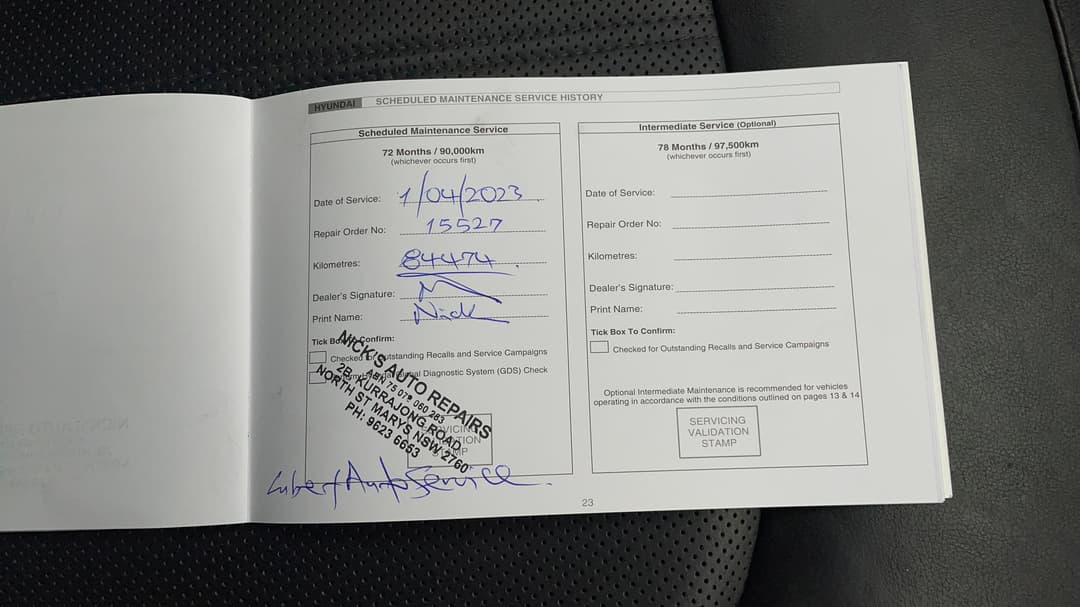 HYUNDAI SCHEDULED MAINTENANCE SERVICE HISTORY
Scheduled Maintenance Service
72 Months / 90,000km
(whichever occurs first)
Date of Service: 1/04/2023
Repair Order No: 15527
Kilometres: 84474
Dealer's Signature:
Print Name: Nick
Tick Box To Confirm:
Checked for Outstanding Recalls and Service Campaigns
Diagnostic System (GDS) Check
NICK'S AUTO REPAIRS
ABN 75 079 060 283
2B, KURRAJONG ROAD
NORTH ST MARYS NSW 2760
PH: 9623 6653
SERVICING
VALIDATION
STAMP
Auto Service
Intermediate Service (Optional)
78 Months / 97,500km
(whichever occurs first)
Date of Service:
Repair Order No:
Kilometres:
Dealer's Signature:
Print Name:
Tick Box To Confirm:
Checked for Outstanding Recalls and Service Campaigns
Optional Intermediate Maintenance is recommended for vehicles
operating in accordance with the conditions outlined on pages 13 & 14
SERVICING
VALIDATION
STAMP
23